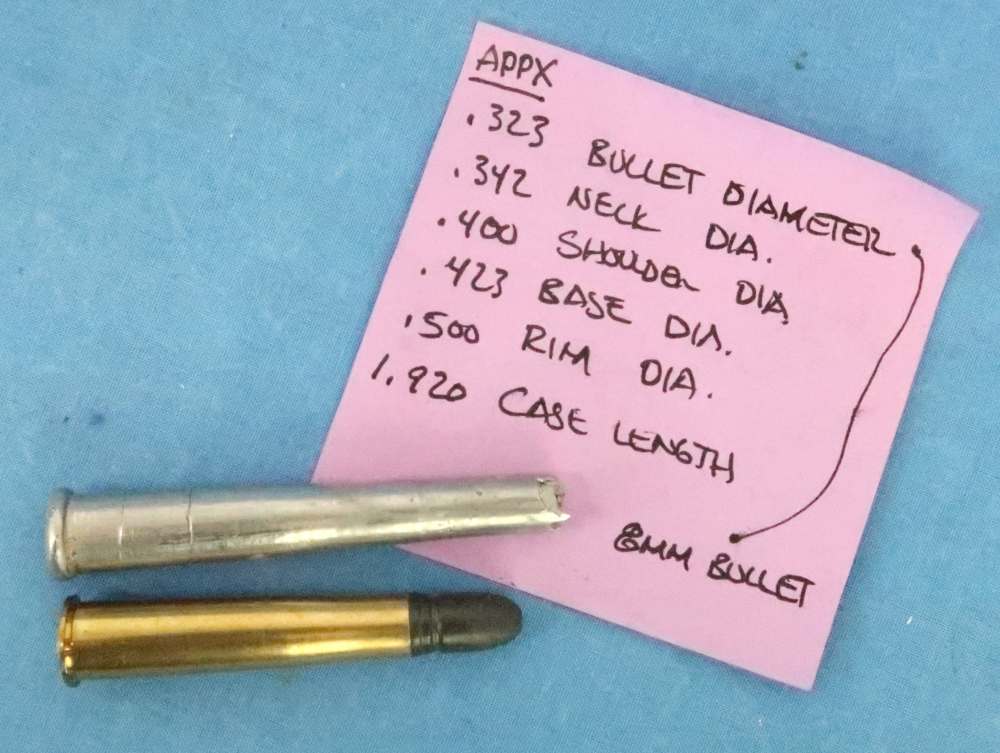 APPX
.323 BULLET DIAMETER
.342 NECK DIA.
.400 SHOULDER DIA
.423 BASE DIA.
.500 RIM DIA.
1.920 CASE LENGTH
8MM BULLET